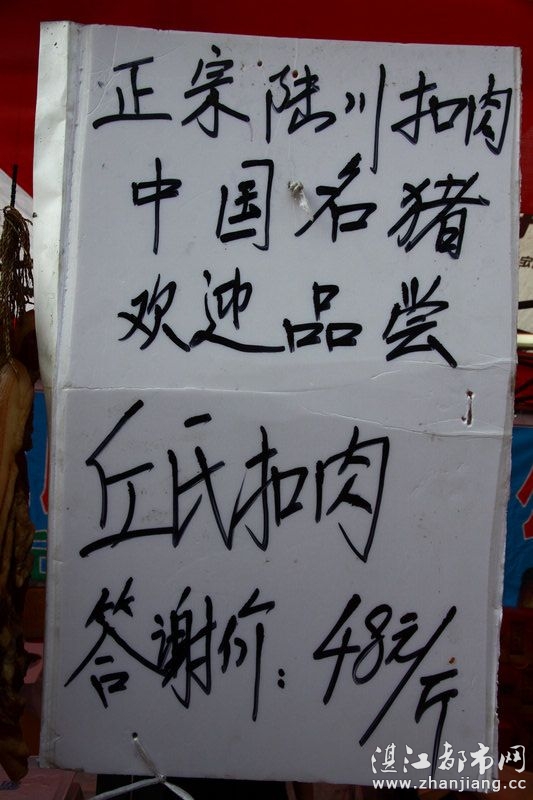 正宗陆川扣肉
中国名猪
欢迎品尝
丘氏扣肉
答谢价：48元/斤
湛江都市网
www.zhanjiang.cc